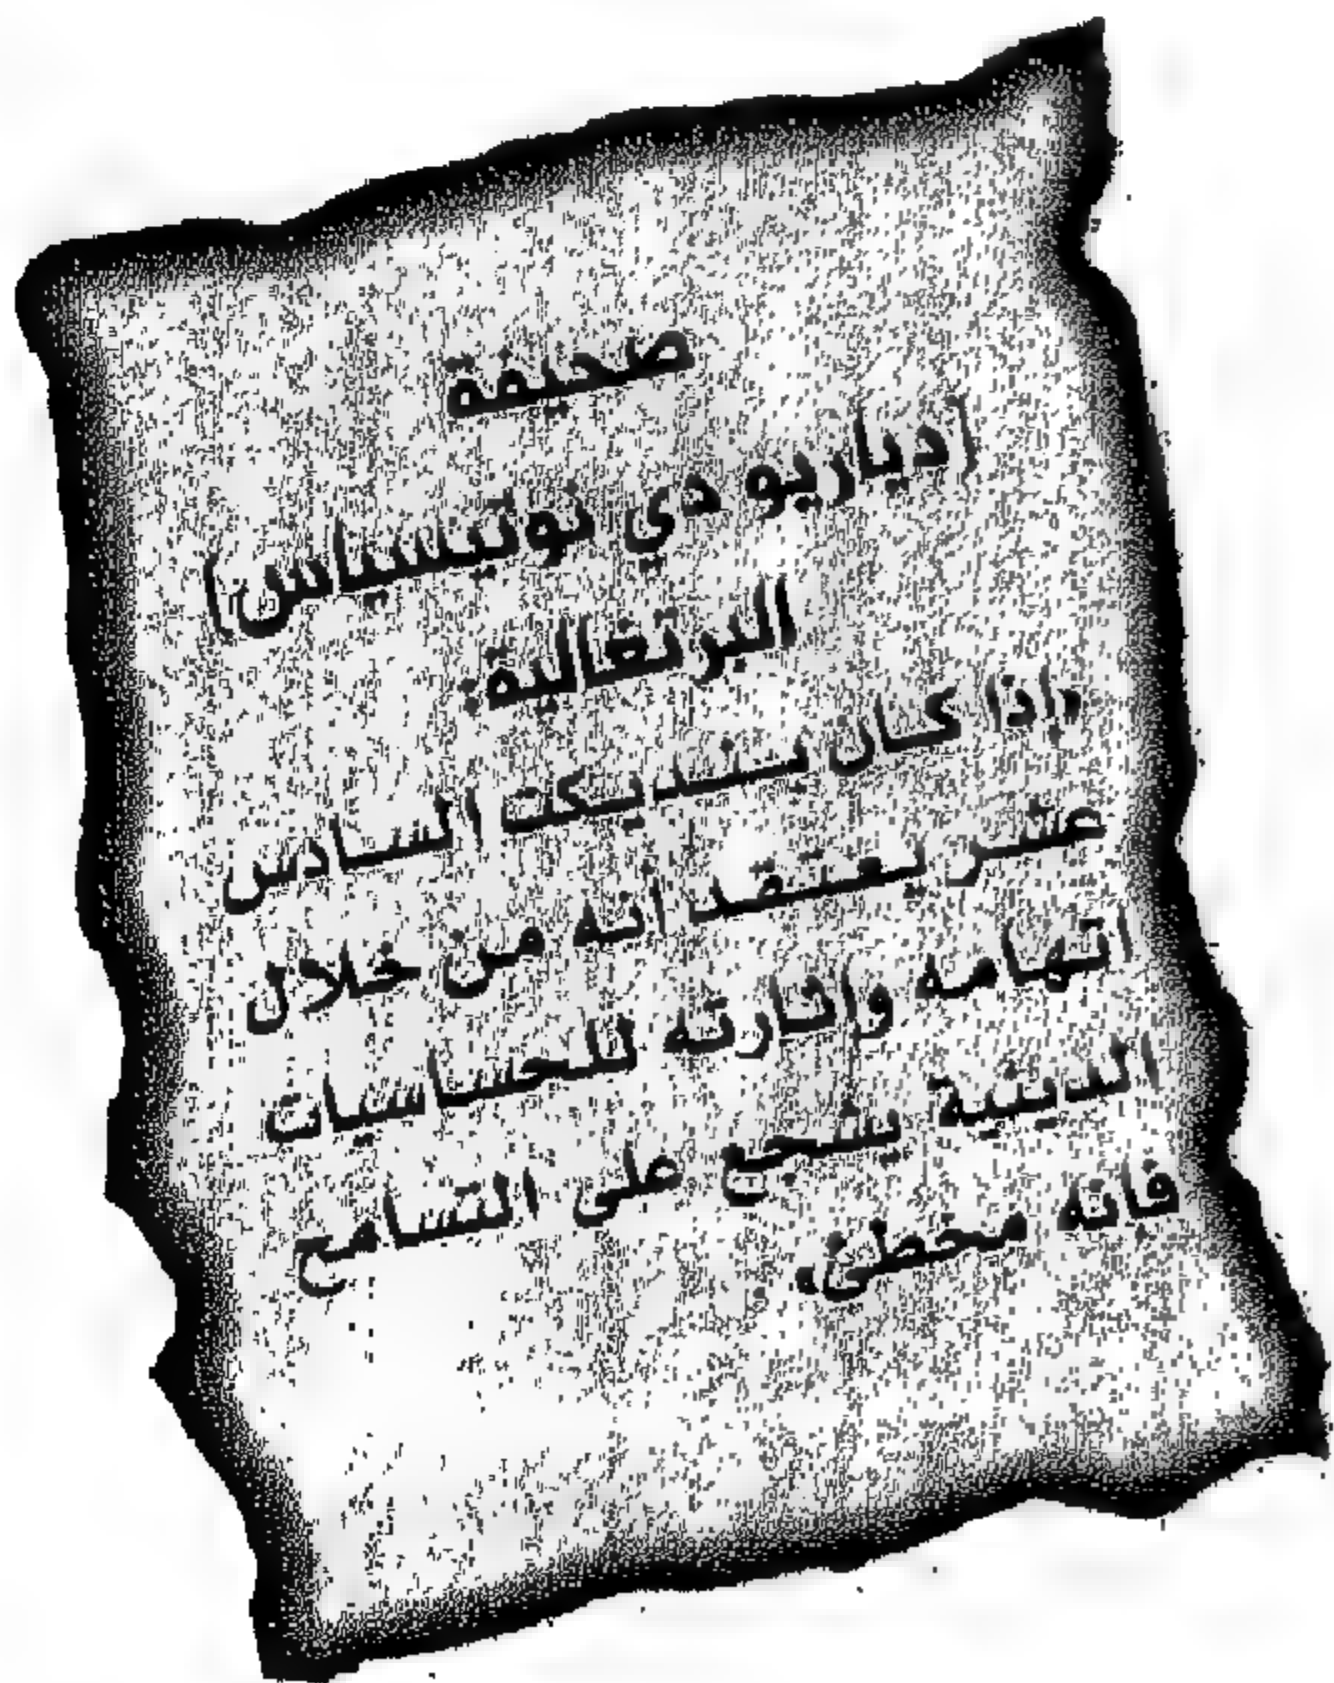 صحيفة
(دياريو دي نوتيسياس)
البرتغالية:
«إذا كان بنديكت السادس
عشر يعتقد أنه من خلال
اتهامه وإثارته للحساسيات
الدينية يشجع على التسامح
فإنه مخطئ».